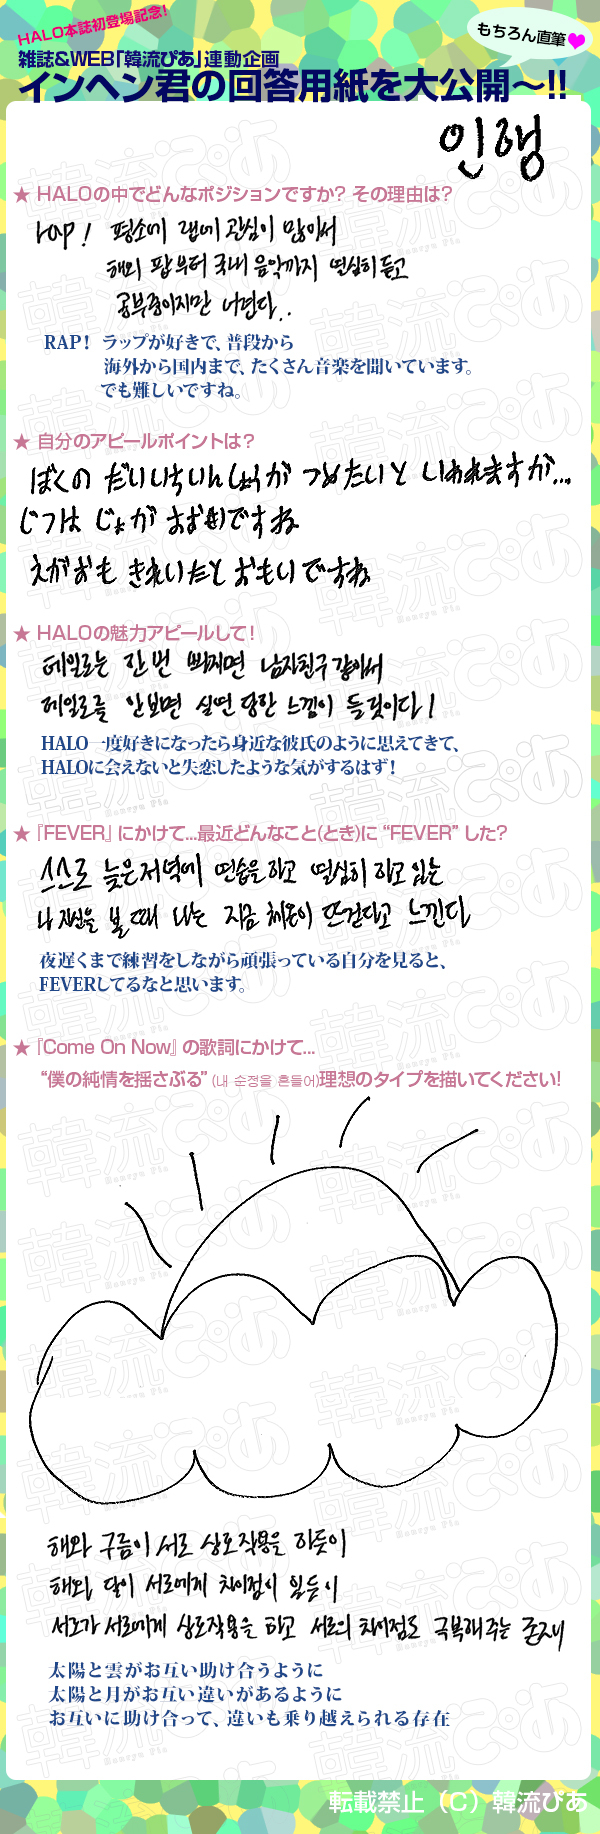 HALO本誌初登場記念!
雑誌&WEB「韓流ぴあ」連動企画
もちろん直筆
インヘン君の回答用紙を大公開〜!!
인행
★ HALOの中でどんなポジションですか? その理由は?
rap! 평소에 랩에 관심이 많아서
해외 팝부터 국내 음악까지 열심히 듣고
공부중이지만 어렵다..
RAP! ラップが好きで、普段から
海外から国内まで、たくさん音楽を聞いています。
でも難しいですね。
★ 自分のアピールポイントは?
ぼくの だいいちいんしょうが つめたいと いわれますが...
じつは じょが おおいですね
えがおも きれいだと おもいですね
★ HALOの魅力アピールして!
헤일로는 한번 빠지면 남자친구 같아서
헤일로를 안보면 실연당한 느낌이 들 것이다!
HALO一度好きになったら身近な彼氏のように思えてきて、
HALOに会えないと失恋したような気がするはず!
★『FEVER』にかけて...最近どんなこと(とき)に “FEVER” した?
스스로 늦은 저녁에 연습을 하고 열심히 하고 있는
나 자신을 볼 때 나는 지금 체온이 뜨겁다고 느낀다
夜遅くまで練習をしながら頑張っている自分を見ると、
FEVERしてるなと思います。
★『Come On Now』の歌詞にかけて...
“僕の純情を揺さぶる” (내 순정을 흔들어)理想のタイプを描いてください!
해와 구름이 서로 상호작용을 하듯이
해와 달이 서로에게 차이점이 있듯이
서로가 서로에게 상호작용을 하고 서로의 차이점도 극복해주는 존재
太陽と雲がお互い助け合うように
太陽と月がお互い違いがあるように
お互いに助け合って、違いも乗り越えられる存在
転載禁止（C）韓流ぴあ